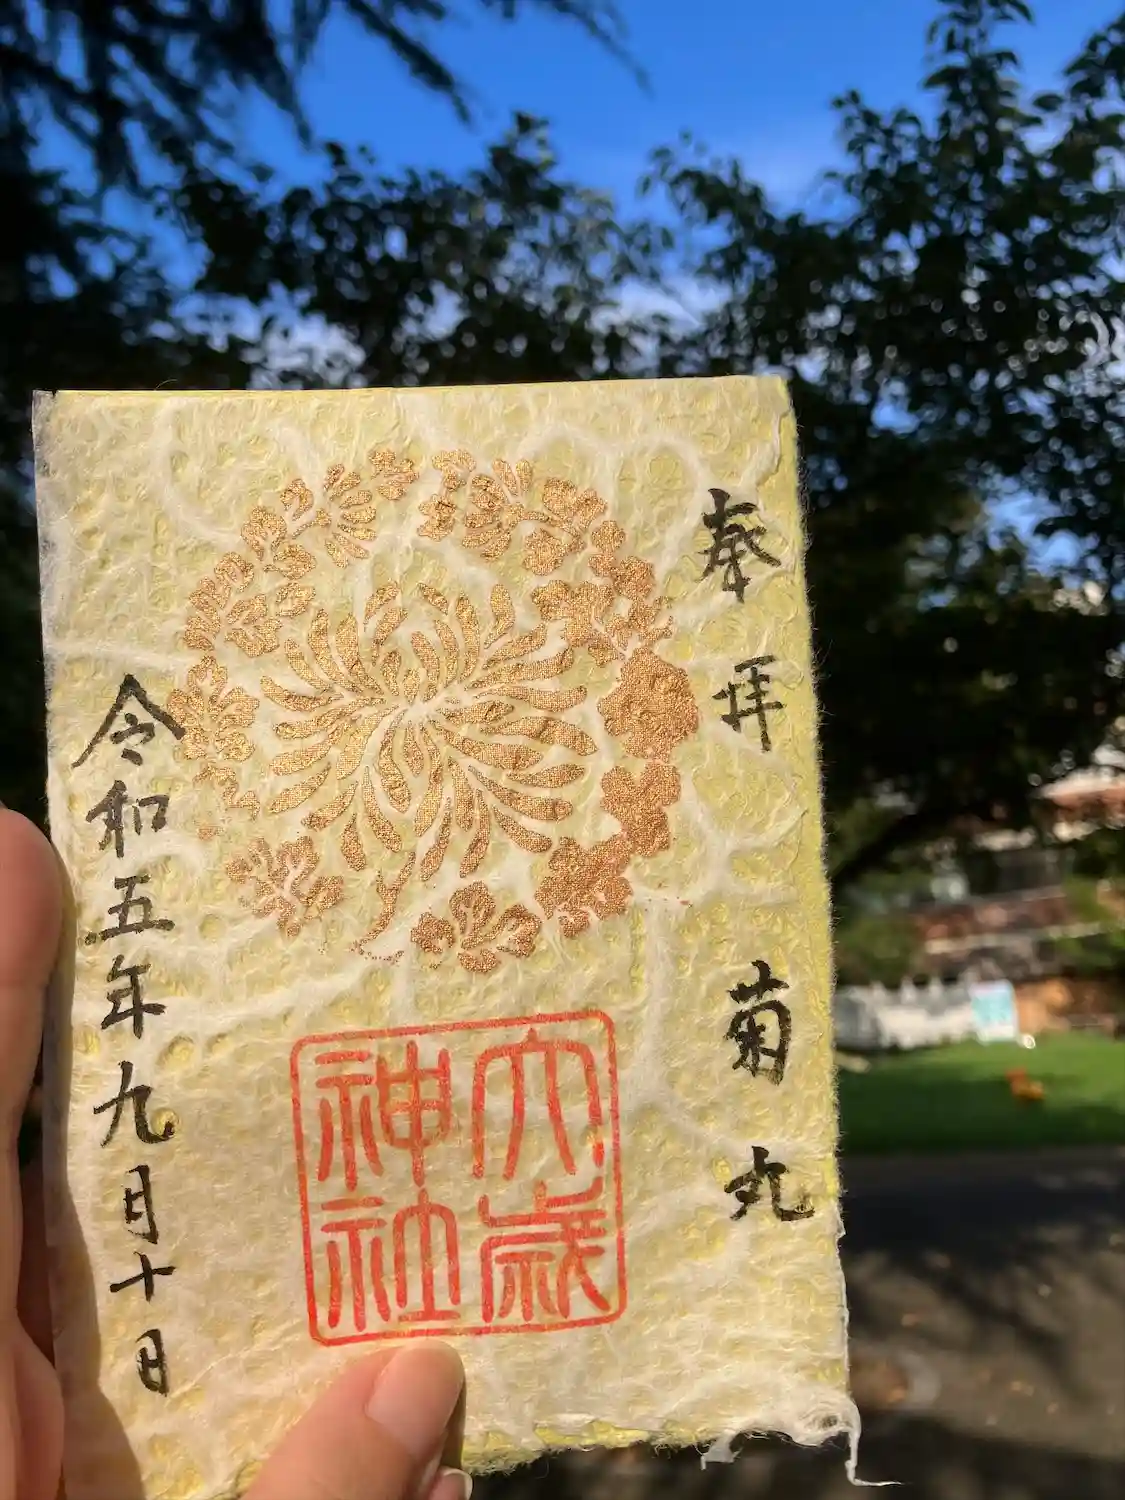 奉拝
菊丸
大歳
神社
令和五年九月十日